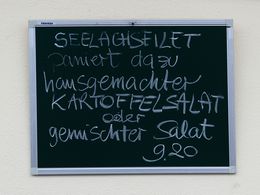 SEELACHSFILET
paniert dazu
hausgemachter
KARTOFFELSALAT
oder
gemischter Salat
9.20